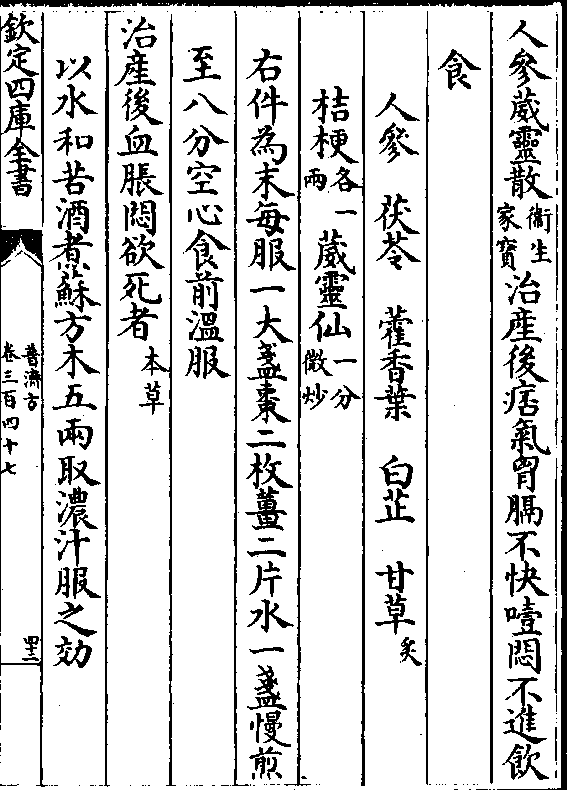 人參葳靈散衛生家寳治産後痞氣胷膈不快噎悶不進飲
食
人參　茯苓　藿香葉　白芷　甘草炙
桔梗各一兩　葳靈仙一分微炒
右件為末每服一大盞棗二枚薑二片水一盞慢煎
至八分空心食前溫服
治産後血脹悶欲死者本草
以水和苦酒煮蘇方木五兩取濃汁服之効
欽定四庫全書
普濟方
卷三百四十七